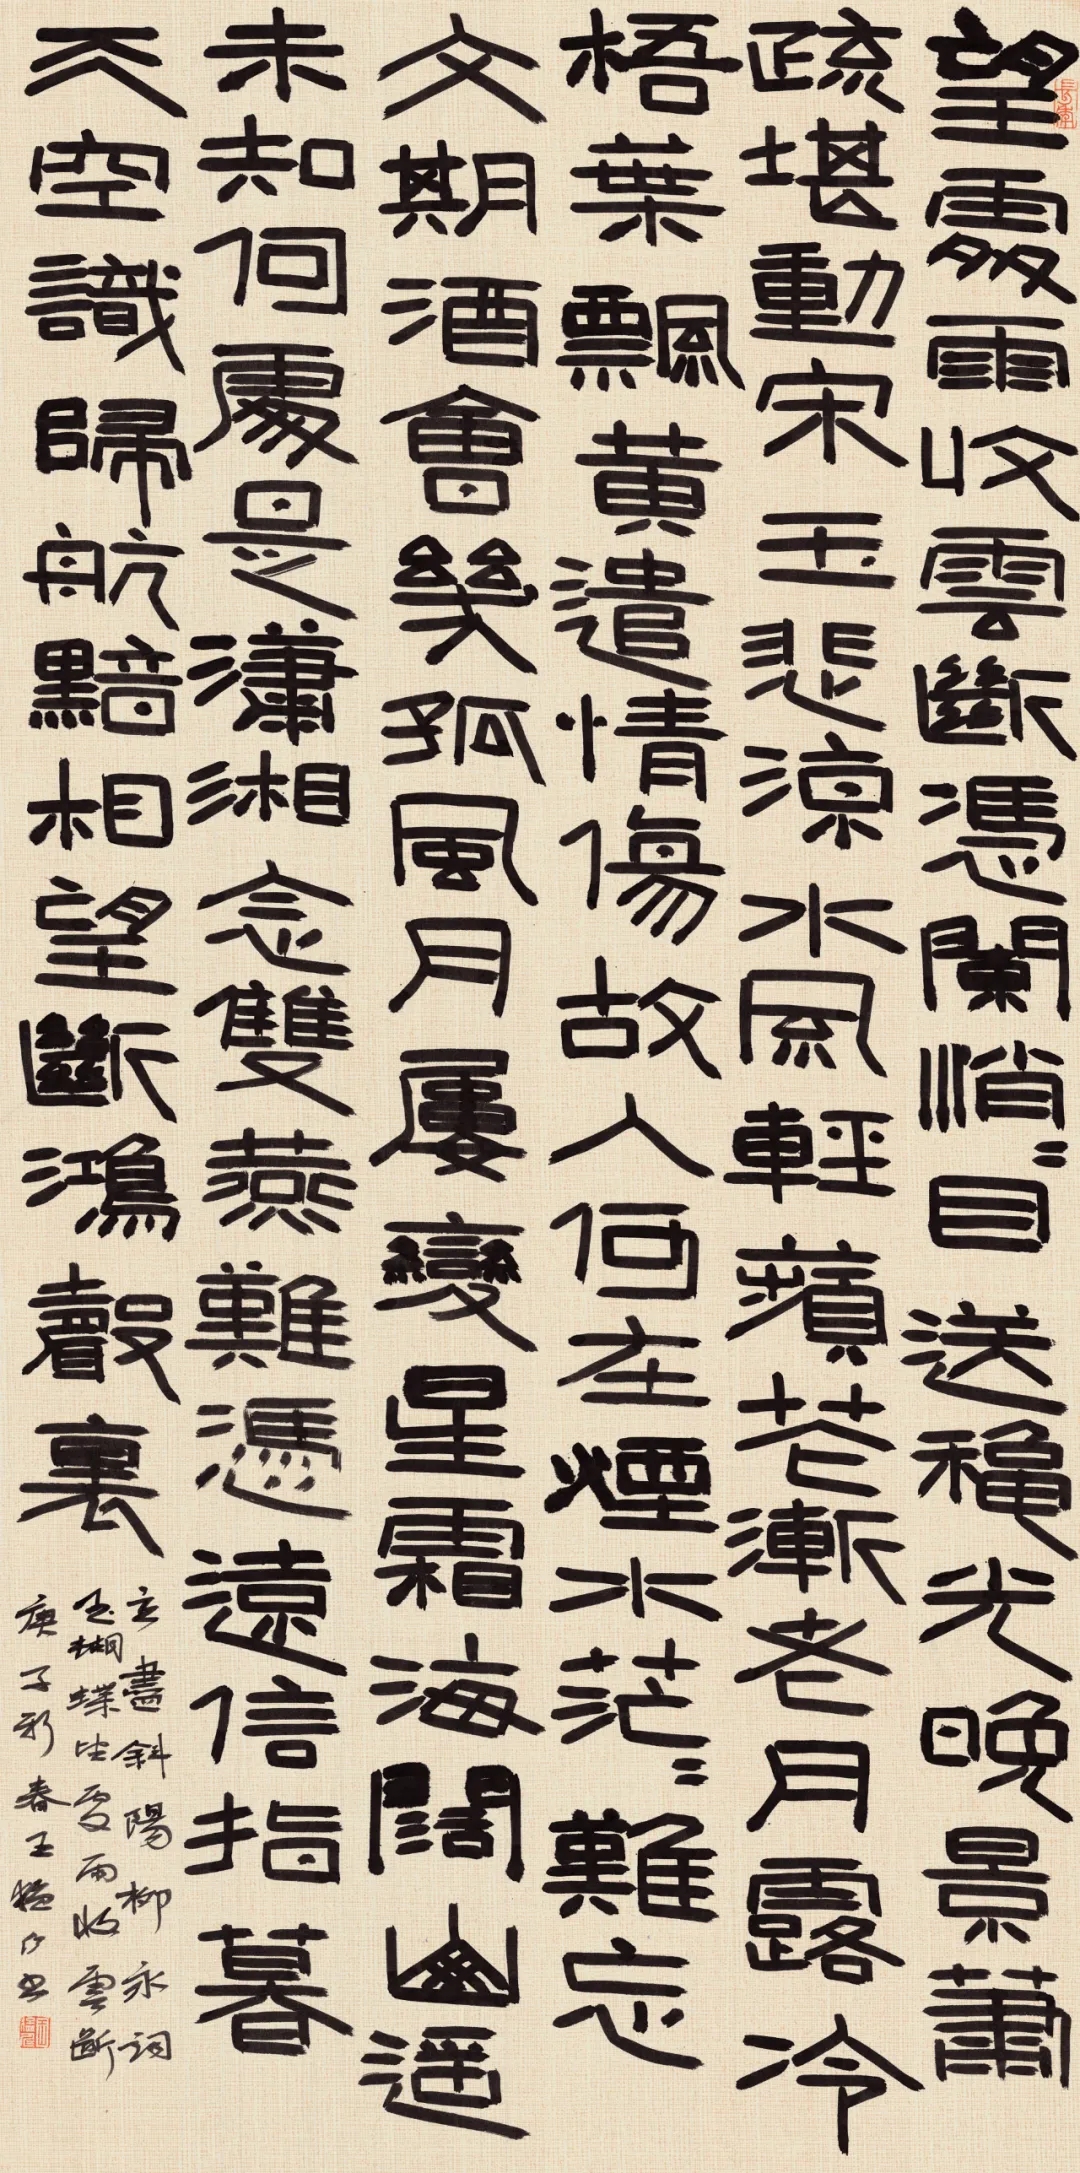 望處雨收雲斷憑闌悄〻目送穐光晚景蕭
疏堪動宋玉悲涼水風輕蘋花漸老月露冷
梧葉飄黃遣情傷故人何在煙水茫〻難忘
文期酒會幾孤風月屢變星霜海闊山遥
未知何處是瀟湘念雙燕難憑遠信指暮
天空識歸航黯相望斷鴻聲裏
立盡斜陽柳永詞
玉蝴蝶望處雨收雲斷
庚子新春王猛仁书